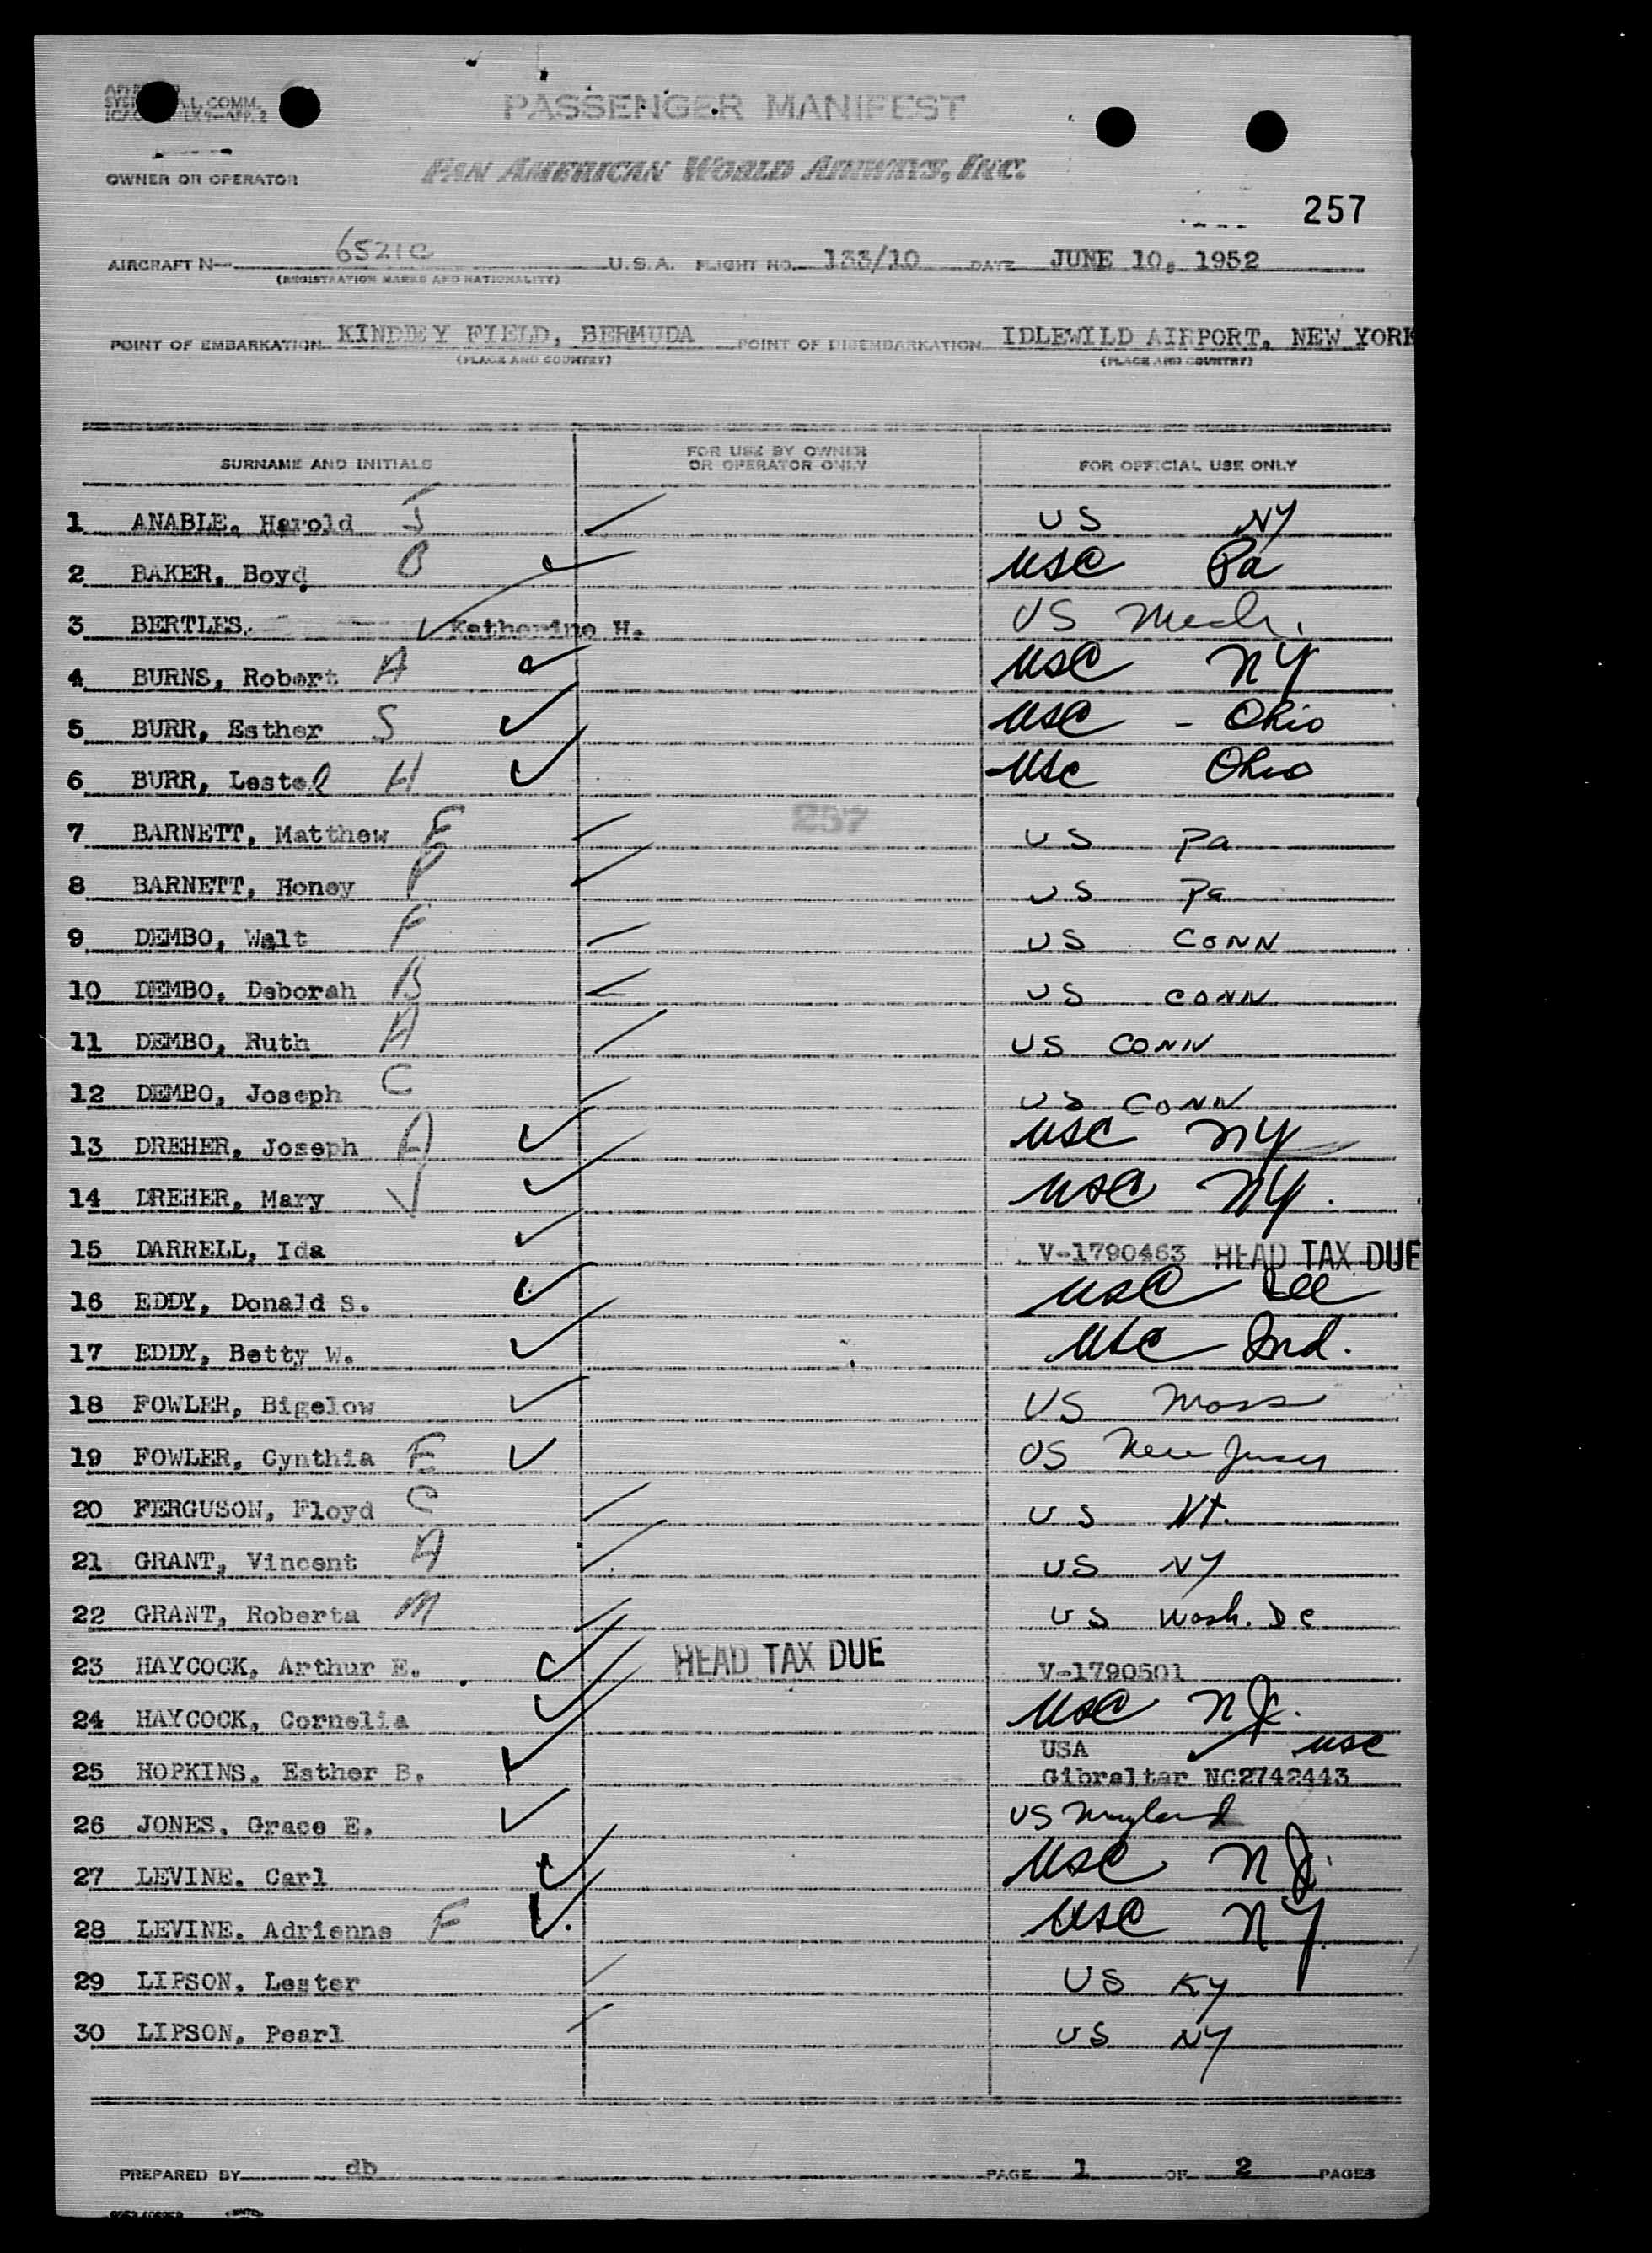 PASSENGER MANIFEST
A.L. COMM.
APP. 2
OWNER OR OPERATOR PAN AMERICAN WORLD AIRWAYS, INC.
257
AIRCRAFT N- 6521C U.S.A. FLIGHT NO. 133/10 DATE JUNE 10, 1952
(REGISTRATION MARKS AND NATIONALITY)
POINT OF EMBARKATION KINDLEY FIELD, BERMUDA POINT OF DISEMBARKATION IDLEWILD AIRPORT, NEW YORK
(PLACE AND COUNTRY) (PLACE AND COUNTRY)
SURNAME AND INITIALS FOR USE BY OWNER OR OPERATOR ONLY FOR OFFICIAL USE ONLY
1 ANABLE, Harold J US NY
2 BAKER, Boyd B USC Pa
3 BERTLES, Katherine H. US Mich.
4 BURNS, Robert A USC NY
5 BURR, Esther S USC - Ohio
6 BURR, Lestel H USC Ohio
257
7 BARNETT, Matthew E US Pa
8 BARNETT, Honey P US Pa
9 DEMBO, Walt F US CONN
10 DEMBO, Deborah B US CONN
11 DEMBO, Ruth A US CONN
12 DEMBO, Joseph C US CONN
13 DREHER, Joseph A USC NY
14 DREHER, Mary V USC NY.
15 DARRELL, Ida V-1790463 HEAD TAX DUE
16 EDDY, Donald S. USC Ill
17 EDDY, Betty W. USC Ind.
18 FOWLER, Bigelow US Mass
19 FOWLER, Cynthia E US New Jersey
20 FERGUSON, Floyd C US Vt.
21 GRANT, Vincent A US NY
22 GRANT, Roberta M US Wash. D C
23 HAYCOCK, Arthur E. HEAD TAX DUE V-1790501
24 HAYCOCK, Cornelia USC N J.
USA USC
25 HOPKINS, Esther B. Gibraltar NC2742443
26 JONES, Grace E. US Maryland
27 LEVINE, Carl USC N J.
28 LEVINE, Adrienne F USC NY
29 LIPSON, Lester US Ky
30 LIPSON, Pearl US NY
PREPARED BY db PAGE 1 OF 2 PAGES